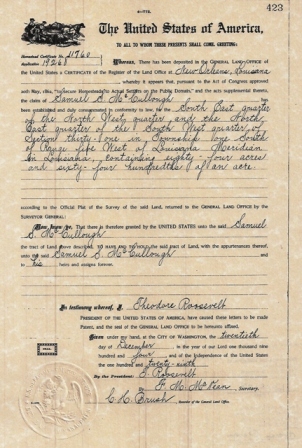 423
The United States of America,
TO ALL TO WHOM THESE PRESENTS SHALL COME, GREETING:
Homestead Certificate No. 11760
Application 19268
WHEREAS, There has been deposited in the GENERAL LAND OFFICE of
the United States a CERTIFICATE of the Register of the Land Office at New Orleans, Louisiana
, whereby it appears that, pursuant to the Act of Congress approved
20th May, 1862, "To secure Homesteads to Actual Settlers on the Public Domain," and the acts supplemental thereto,
the claim of Samuel S. McCullough
has been established and duly consummated, in conformity to law, for the South East quarter
of the North West quarter and the North
East quarter of the South West quarter of
Section thirty one in Township one South
of Range West of Louisiana Meridian
in Louisiana, containing eighty four acres
and sixty four hundredths of an acre.
according to the Official Plat of the Survey of the said Land, returned to the GENERAL LAND OFFICE by the
SURVEYOR GENERAL:
Now know ye, That there is therefore granted by the UNITED STATES unto the said Samuel
S. McCullough
the tract of Land above described, TO HAVE AND TO HOLD the said tract of Land, with the appurtenances thereof,
unto the said Samuel S. McCullough and
to his heirs and assigns forever.
In testimony whereof, I, Theodore Roosevelt
PRESIDENT OF THE UNITED STATES OF AMERICA, have caused these letters to be made
Patent, and the seal of the GENERAL LAND OFFICE to be hereunto affixed.
Given under my hand, at the CITY OF WASHINGTON, the twentieth
day of December, in the year of our Lord one thousand nine
hundred and four, and of the Independence of the United States
the one hundred and twenty-ninth
By the President: T. Roosevelt
By F. M. McKean, Secretary.
C. H. Brush, Recorder of the General Land Office.